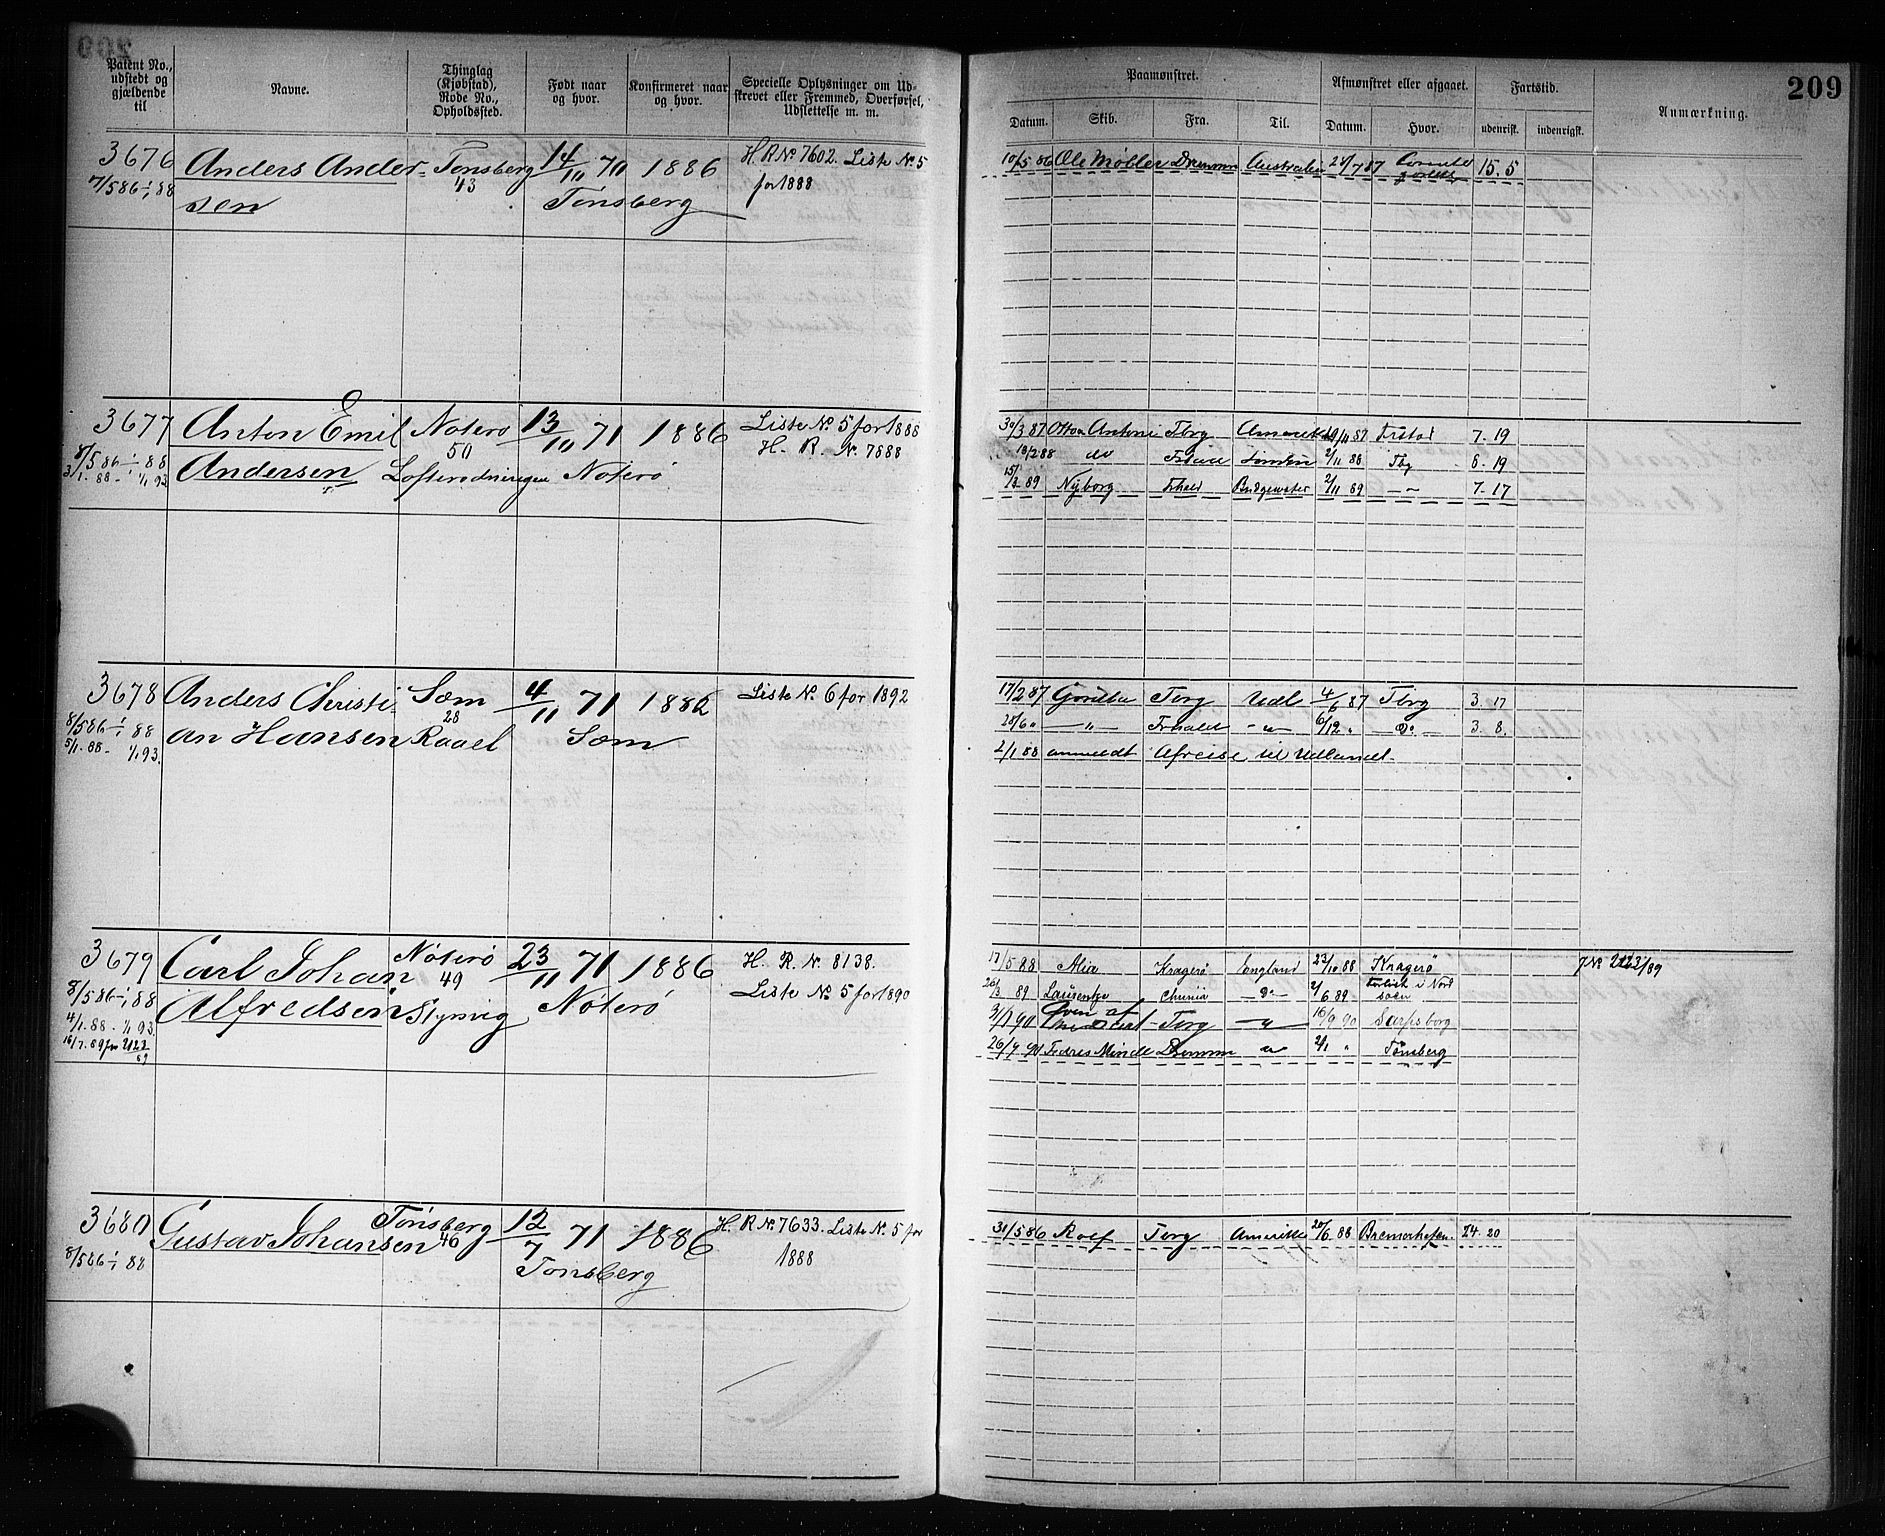 209
Patent No., udstedt og gjældende til
Navne.
Thinglag (Kjøbstad), Rode No., Opholdssted.
Født naar og hvor.
Konfirmeret naar og hvor.
Specielle Oplysninger om Udskrevet eller Fremmed, Overførsel, Udslettelse m. m.
Paamønstret.
Afmønstret eller afgaaet.
Fartstid.
Anmærkning.
Datum.
Skib.
Fra.
Til.
Datum.
Hvor.
udenrigsk.
indenrigsk.
3676 Anders Ander- Tønsberg 14/11 70 1886 H. R. No. 7602. Liste No. 5
7/5 86 - 1/1 88 sen 43 Tønsberg for 1888
10/5 86 Ole Møller Drammen Australien 28/7 87 15. 5
3677 Anton Emil Nøterø 13/11 71 1886 Liste No. 5 for 1888
8/5 86 - 1/1 88 Andersen 50 Nøterø H. R. No. 7888
3/1 88 - 1/1 93
30/3 87 Tbrg Amerika 29/11 87 Frstad 7. 19
10/2 88 do London 2/11 88 Tbg 8. 19
15/3 89 Nyborg Frhald Bridgewater 2/11 89 — " — 7. 17
3678 Anders Christi- Sæm 4/11 71 1886 Liste No. 6 for 1892
8/5 86 - 1/1 88 an Hansen 28 Raael Sæm
5/1 88 - 1/1 93.
17/2 87 Tbrg Udl 4/6 87 Tbrg 3. 17
28/6 " — " — Frhald — " — 6/12 " — Do — 3. 8.
2/1 88 anmeldt Afreise til Udlandet.
3679 Carl Johan Nøterø 23/11 71 1886 H. R. No. 8138.
8/5 86 - 1/1 88 Alfredsen 49 Nøterø Liste No. 5 for 1890
4/1 88 - 1/1 93.
16/7. 89 2123/89
17/5 88 Alia Kragerø England 23/10 88 Kragerø No 2123/89
20/3 89 Laurentze Chrnia — Do — 2/6 89 forlist i Nord
søen
3/1 90 Tbrg — " — 16/9 90 Sarpsborg
26/9 90 Fedres Minde Drammen " 2/1 " Tønsberg
3680 Gustav Johansen Tønsberg 12/7 71 1886 H. R. No. 7633. Liste No. 5 for
8/5 86 - 1/1 88 46 Tønsberg 1888
31/5 86 Rolf Tbrg Amerika 20/6 88 Bremerhafen 24 20